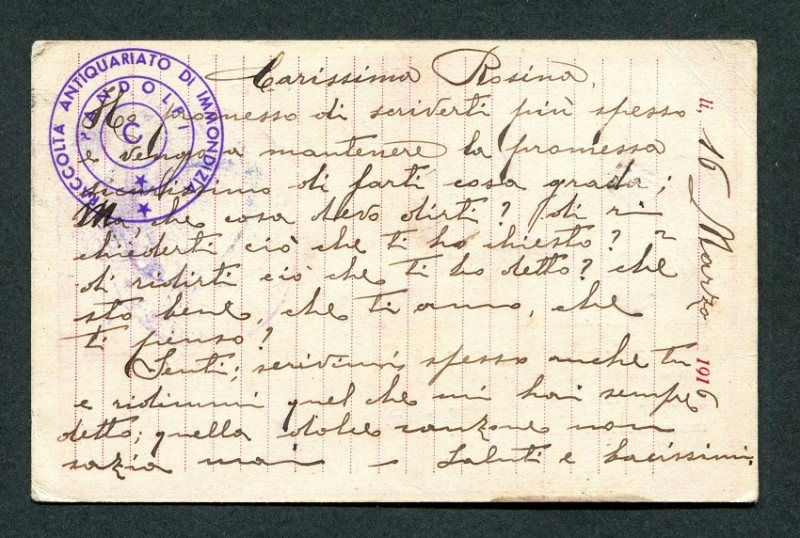 RACCOLTA ANTIQUARIATO DI IMMONDIZIA
PANDOLFI
C
li, 16 Marzo 1916
Carissima Rosina,
Ho promesso di scriverti più spesso
e vengo a mantenere la promessa
sicurissimo di farti cosa grada;
Ma, che cosa devo dirti? di ri
chiederti ciò che ti ho chiesto?
di ridirti ciò che ti ho detto? che
sto bene, che ti amo, che
ti penso?
Senti; scrivimi spesso anche tu
e ridimmi quel che mi hai sempre
detto; quella dolce canzone non
sazia mai – Saluti e bacissimi.